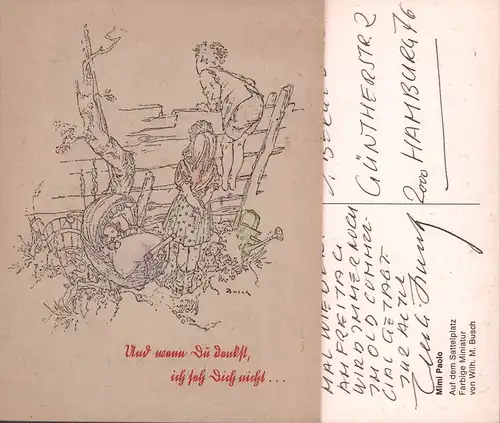 Busch
Und wenn Du denkst,
ich seh Dich nicht...
MAL WIEDER.
AM FREITAG
WIRD IMMER NOCH
IM OLD COMMER-
CIAL GETAGT.
ZUR ALTEN
GÜNTHERSTR. 2
2000 HAMBURG 76
Mimi Paolo
Auf dem Sattelplatz
Farbige Miniatur
von Wilh. M. Busch